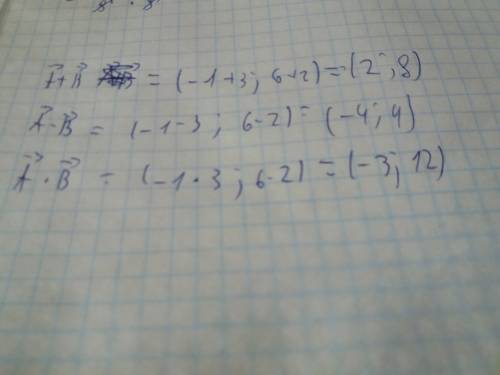 A⃗+B⃗ = (-1+3; 6+2) = (2; 8)
A⃗-B⃗ = (-1-3; 6-2) = (-4; 4)
A⃗·B⃗ = (-1·3; 6·2) = (-3; 12)